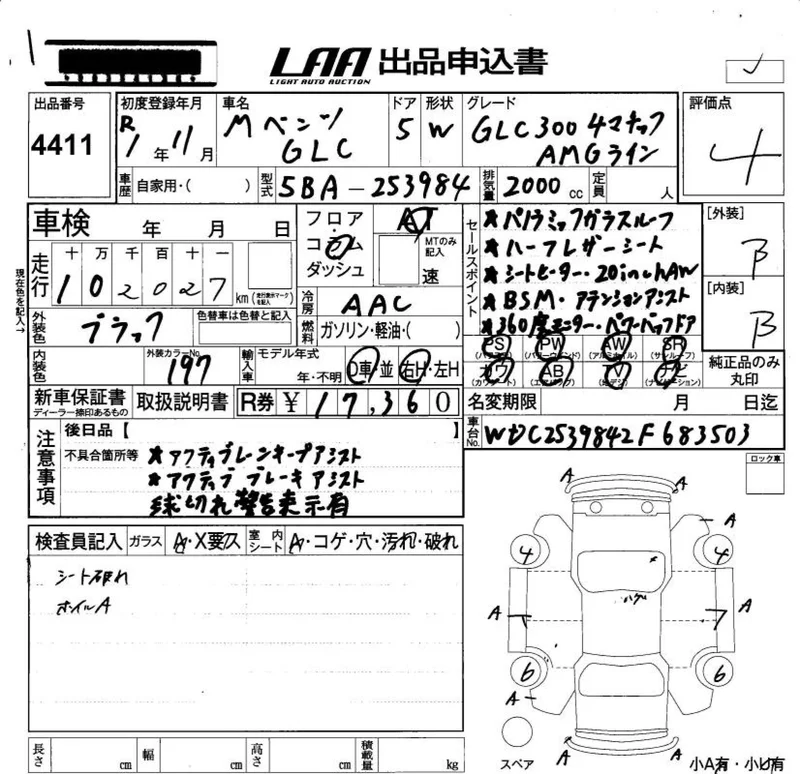 LAA 出品申込書
LIGHT AUTO AUCTION
出品番号
4411
初度登録年月
R 1年 11月
車名
Mベンツ
GLC
ドア
5
形状
W
グレード
GLC300 4マチック
AMGライン
評価点
4
車歴
自家用・( )
型式
5BA-253984
排気量
2000 cc
定員
人
車検 年 月 日
フロア
・
コラム
ダッシュ
AT
MTのみ記入
速
セールスポイント
★パノラミックガラスルーフ
★ハーフレザーシート
★シートヒーター・20inchAW
★BSM・アテンションアシスト
★360度モニター・パワーバックドア
[外装]
B
[内装]
B
現在色を記入→
走行
十 万 千 百 十 一
1 0 2 0 2 7
km
(走行表示マークを記入)
冷房
AAC
燃料
ガソリン・軽油・( )
外装色
ブラック
色替車は色替と記入
内装色
外装カラーNo.
197
輸入車
モデル年式
年・不明
D車・並
右H・左H
PS
PW
(パワーウインド)
AW
(アルミホイル)
SR
(サンルーフ)
カワ
(カワシート)
AB
(エアバッグ)
TV
(地デジ)
ナビ
(ナビゲーション)
純正品のみ
丸印
新車保証書
ディーラー捺印あるもの
取扱説明書
R券 ¥ 17,360
名変期限 月 日迄
車台No.
WDC2539842F683503
注意事項
後日品【 】
不具合箇所等
★アクティブレーンキープアシスト
★アクティブブレーキアシスト
球切れ警告表示有
ロック車
検査員記入
ガラス
A・X要・欠
室内シート
A・コゲ・穴・汚れ・破れ
シート破れ
ホイルA
A
A
A
A
4
4
ハゲ
A
A
6
6
A
A
A
スペア
長さ cm
幅 cm
高さ cm
積載量 kg
小A有・小U有